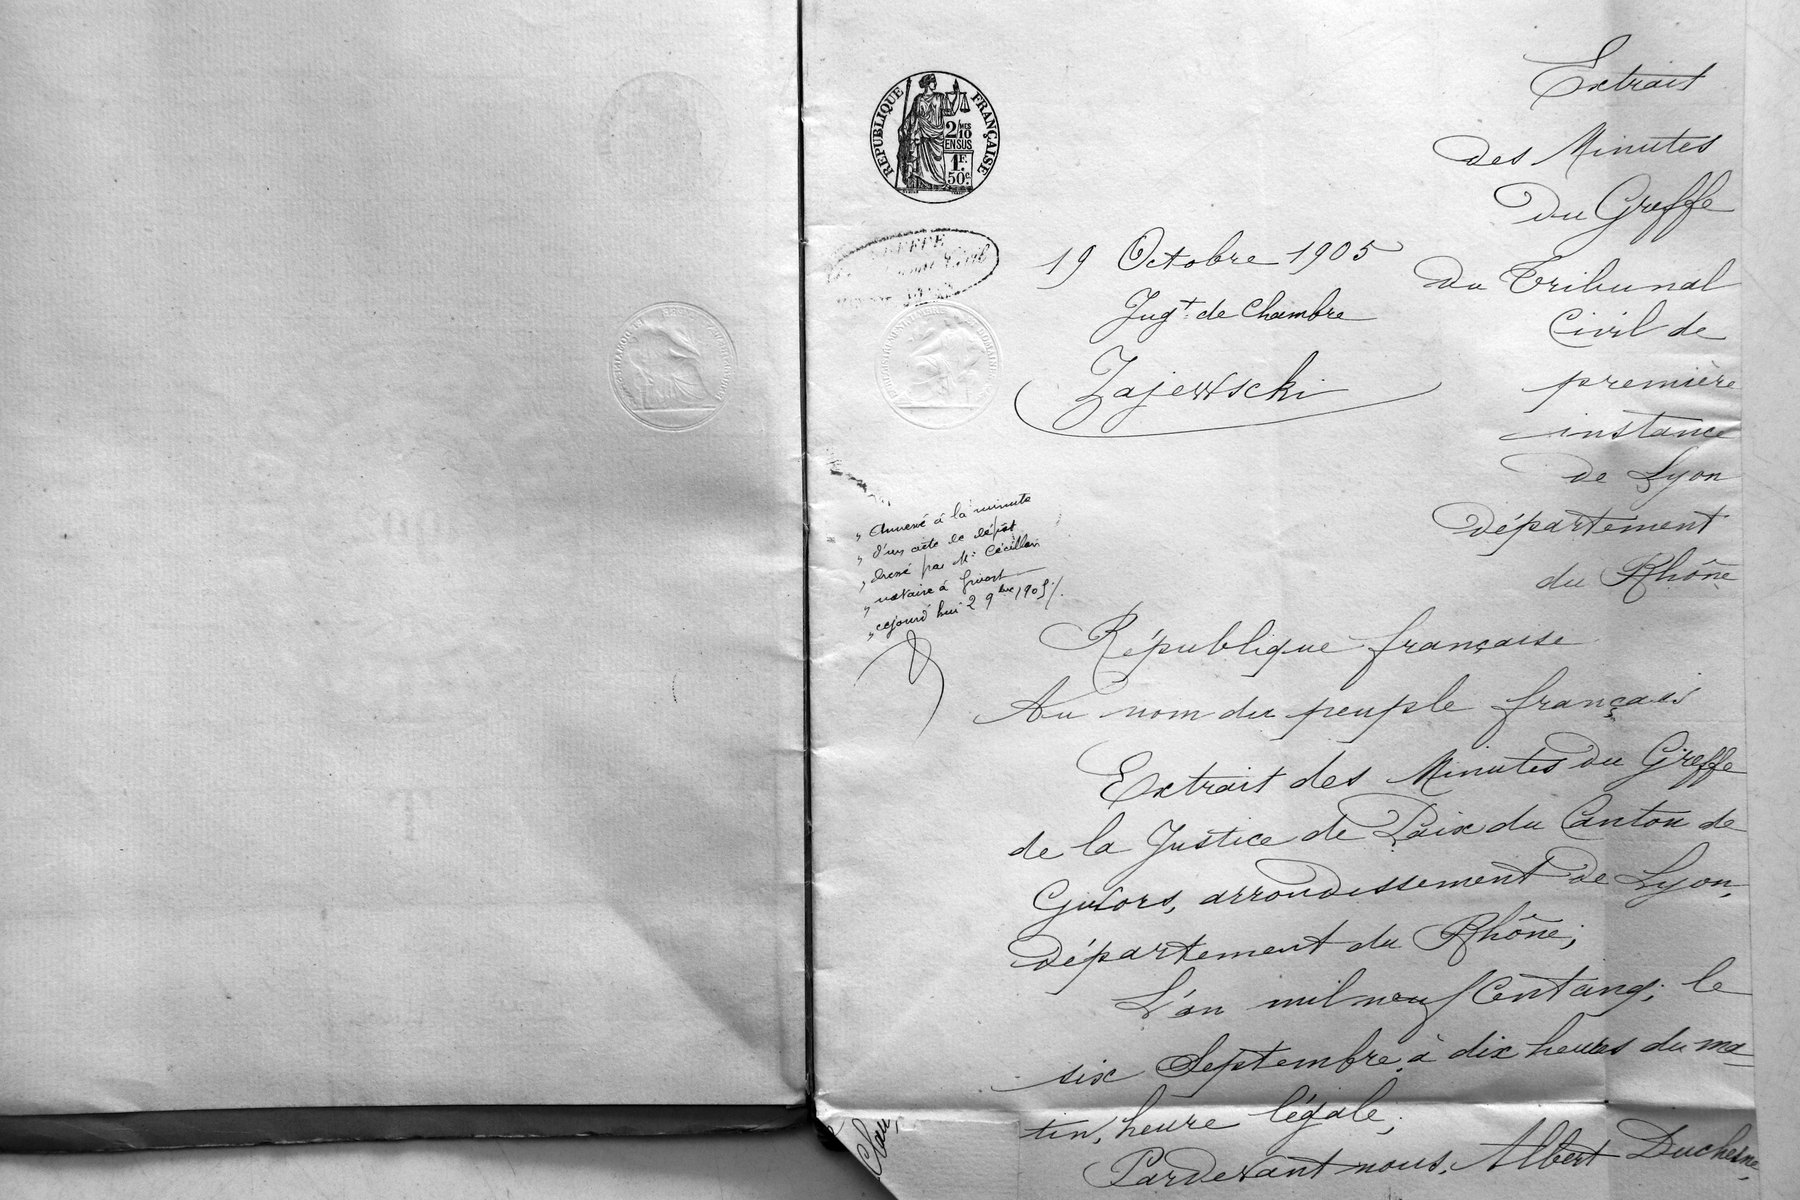 RÉPUBLIQUE FRANÇAISE
2/MES
10
EN SUS
1F.
50c.
GREFFE
19 Octobre 1905
Jugt. de Chambre
Zajewscki
Extrait
des Minutes
du Greffe
du Tribunal
Civil de
première
instance
de Lyon
Département
du Rhône
„ Annexé à la minute
„ d'un acte de dépôt
„ dressé par Me. Cécillon
„ notaire à Givors
„ cejourd'hui 2 9bre 1905 /.
République française
Au nom du peuple français
Extrait des Minutes du Greffe
de la Justice de Paix du Canton de
Givors, arrondissement de Lyon,
département du Rhône;
L'an mil neuf cent cinq; le
six Septembre à dix heures du ma-
tin, heure légale;
Pardevant nous, Albert Duchesne,